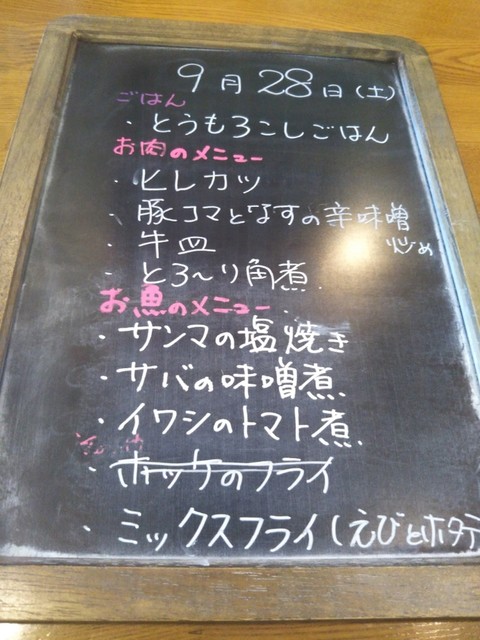 9月28日(土)
ごはん
・とうもろこしごはん
お肉のメニュー
・ヒレカツ
・豚コマとなすの辛味噌
炒め
・牛皿
・とろ〜り角煮
お魚のメニュー
・サンマの塩焼き
・サバの味噌煮
・イワシのトマト煮
・ホッケのフライ
・ミックスフライ(えびとホタテ